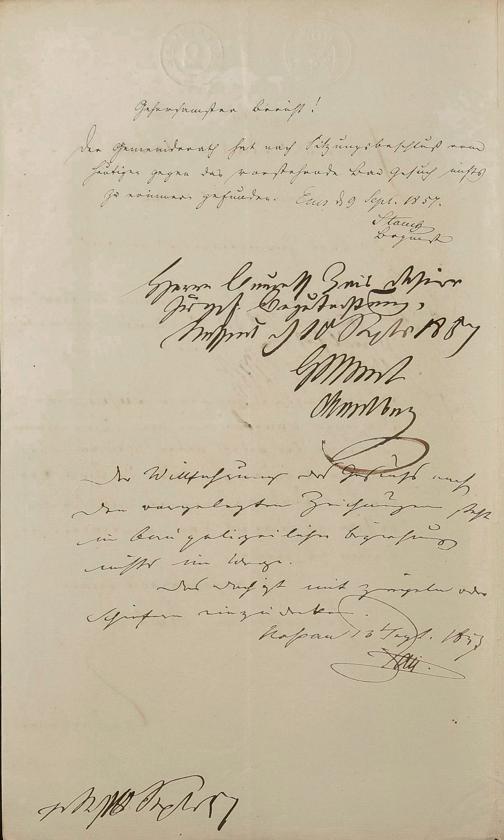 Gehorsamster Bericht!
Der Gemeinderath hat nach Sitzungsbeschluß vom
heutigen gegen das vorstehende Bau Gesuch nichts
zu erinnern gefunden. Ems d 9 Sept. 1857.
Herrn
zur Begutachtung.
Nassau d 10 Septr 1857
Der Willfahrung des Gesuchs nach
den vorgelegten Zeichnungen steht
in baupolizeilicher Beziehung
nichts im Wege.
Das Dach ist mit Ziegeln oder
Schiefern einzudecken.
Nassau 13 Sept. 1857
Septr 57